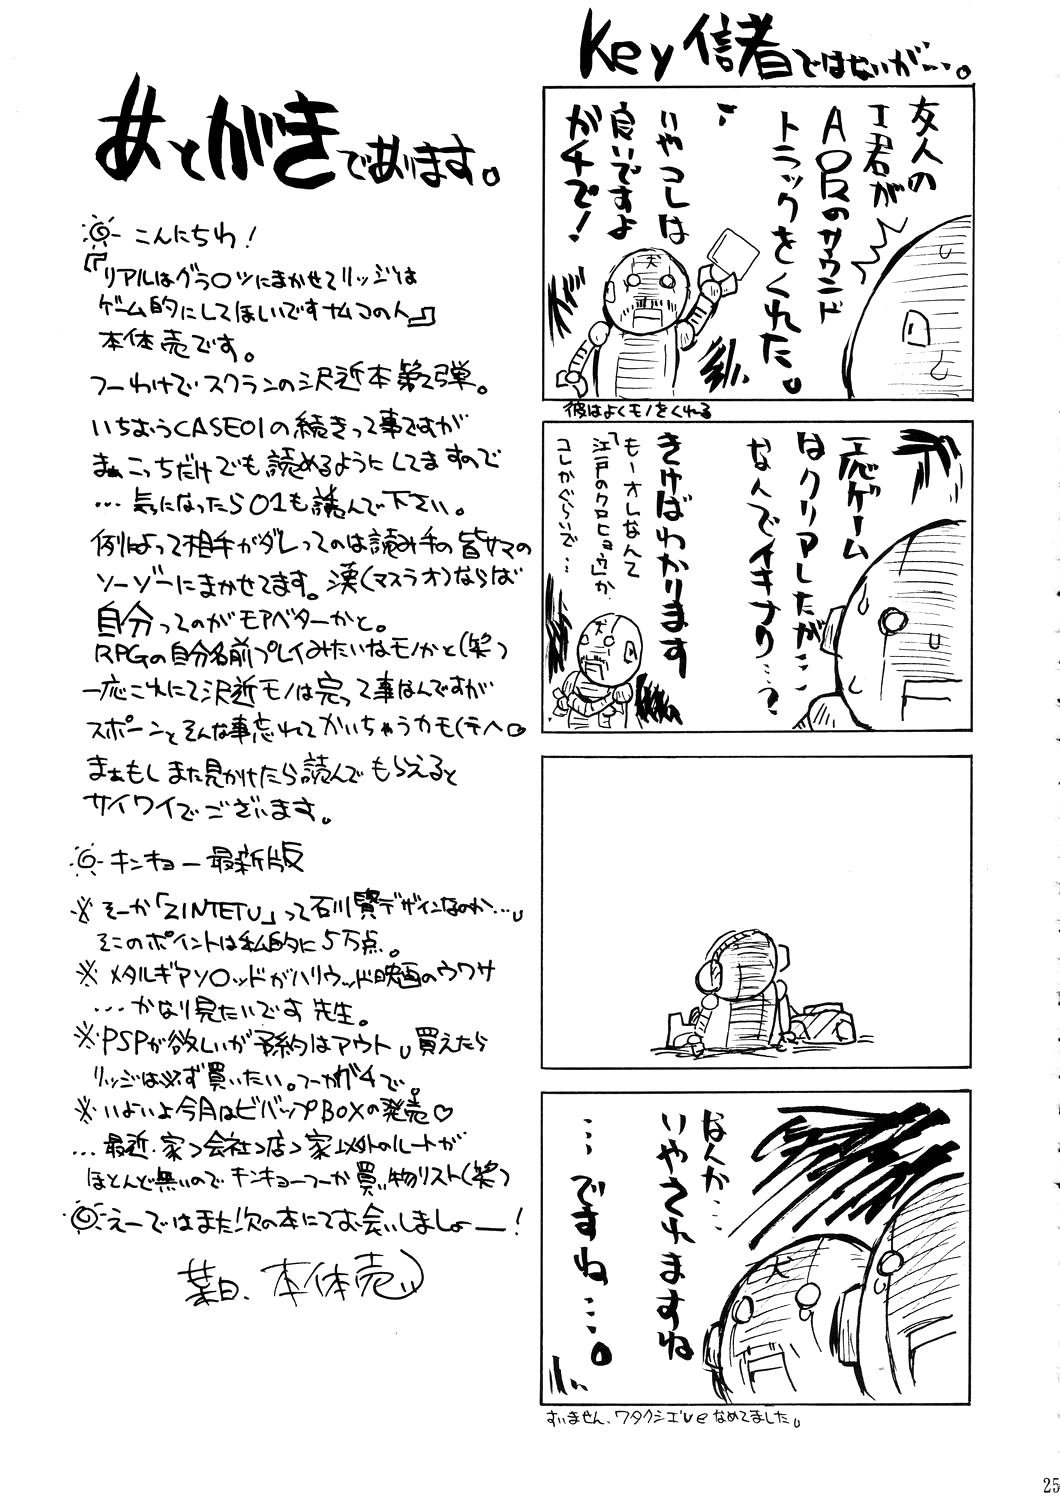 Key信者ではないが…。
友人の
I君が
AIRのサウンド
トラックをくれた。
いやコレは
良いですよ
ガチで!
犬
彼はよくモノをくれる
一応ゲーム
はクリアしたが…
なんでイキナリ…?
きけばわかります
もーオレなんて
「江戸のクロヒョウ」か
コレかぐらいで…
犬
なんか…
いやされますね
…ですね…。
犬
すいません、ワタクシ
なめてました。
あとがきであります。
こんにちわ!
『リアルはグラ○ツにまかせてリッジは
ゲーム的にしてほしいですナムコの人』
本体売です。
つーわけでスクランの沢近本第2弾。
いちおうCASE01の続きって事ですが
まぁこっちだけでも読めるようにしてますので
…気になったら01も読んで下さい。
例によって相手がダレってのは読み手の皆サマの
ソーゾーにまかせてます。漢(マスラオ)ならば
自分ってのがモアベターかと。
RPGの自分名前プレイみたいなモノかと(笑)
一応これにて沢近モノは完って事なんですが
スポーンとそんな事忘れてかいちゃうカモ(テヘ。
まぁもしまた見かけたら読んでもらえると
サイワイでございます。
キンキョー最新版
※そーか「ZINTETU」って石川賢デザインなのか…。
そこのポイントは私的に5万点。
※メタルギアソ○ッドがハリウッド映画のウワサ
…かなり見たいです先生。
※PSPが欲しいが予約はアウト。買えたら
リッジは必ず買いたい。つーかガチで。
※いよいよ今月はビバップBOXの発売♡
…最近、家→会社→店→家以外のルートが
ほとんど無いのでキンキョーつーか買い物リスト(笑)
えーではまた次の本にてお会いしましょー!
葉日、本体売
25